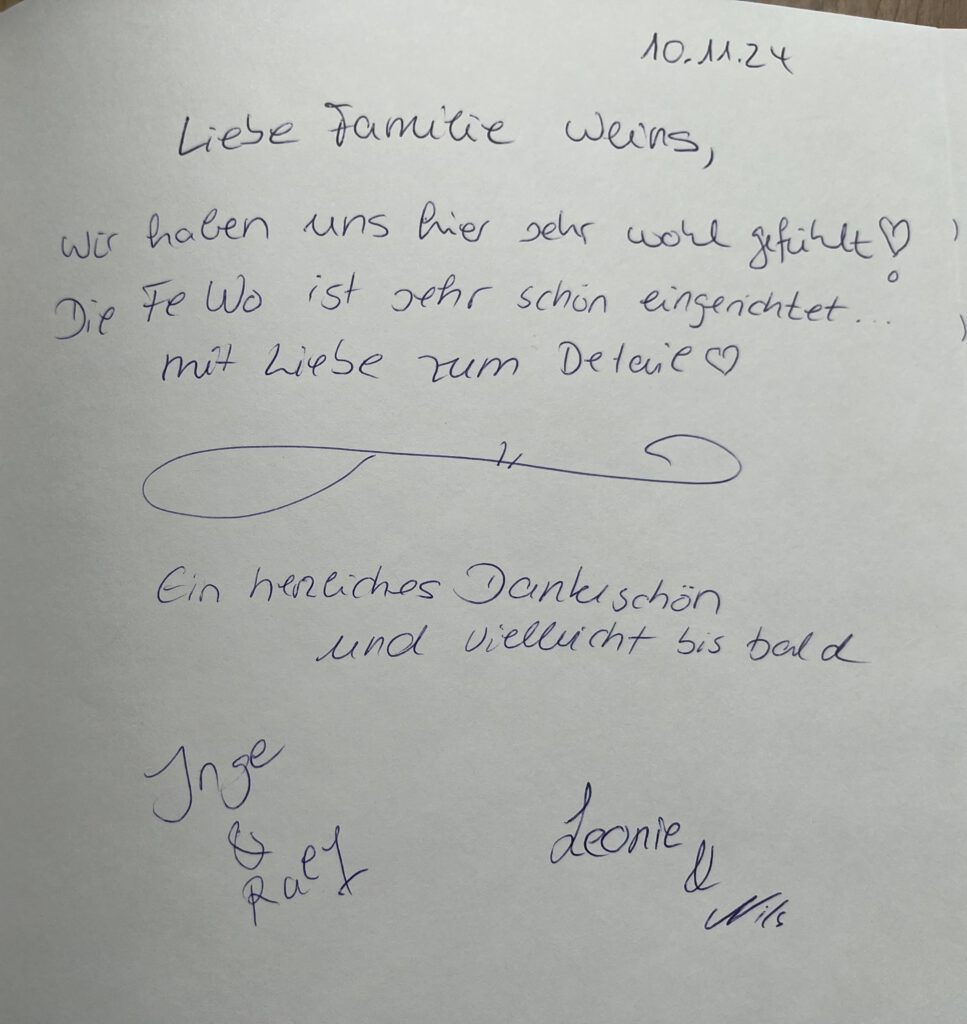 10.11.24
Liebe Familie Weins,
Wir haben uns hier sehr wohl gefühlt♡
Die FeWo ist sehr schön eingerichtet...
mit Liebe zum Detail♡
Ein herzliches Dankeschön
und vielleicht bis bald
Inge
&
Ralf
Leonie
&
Nils